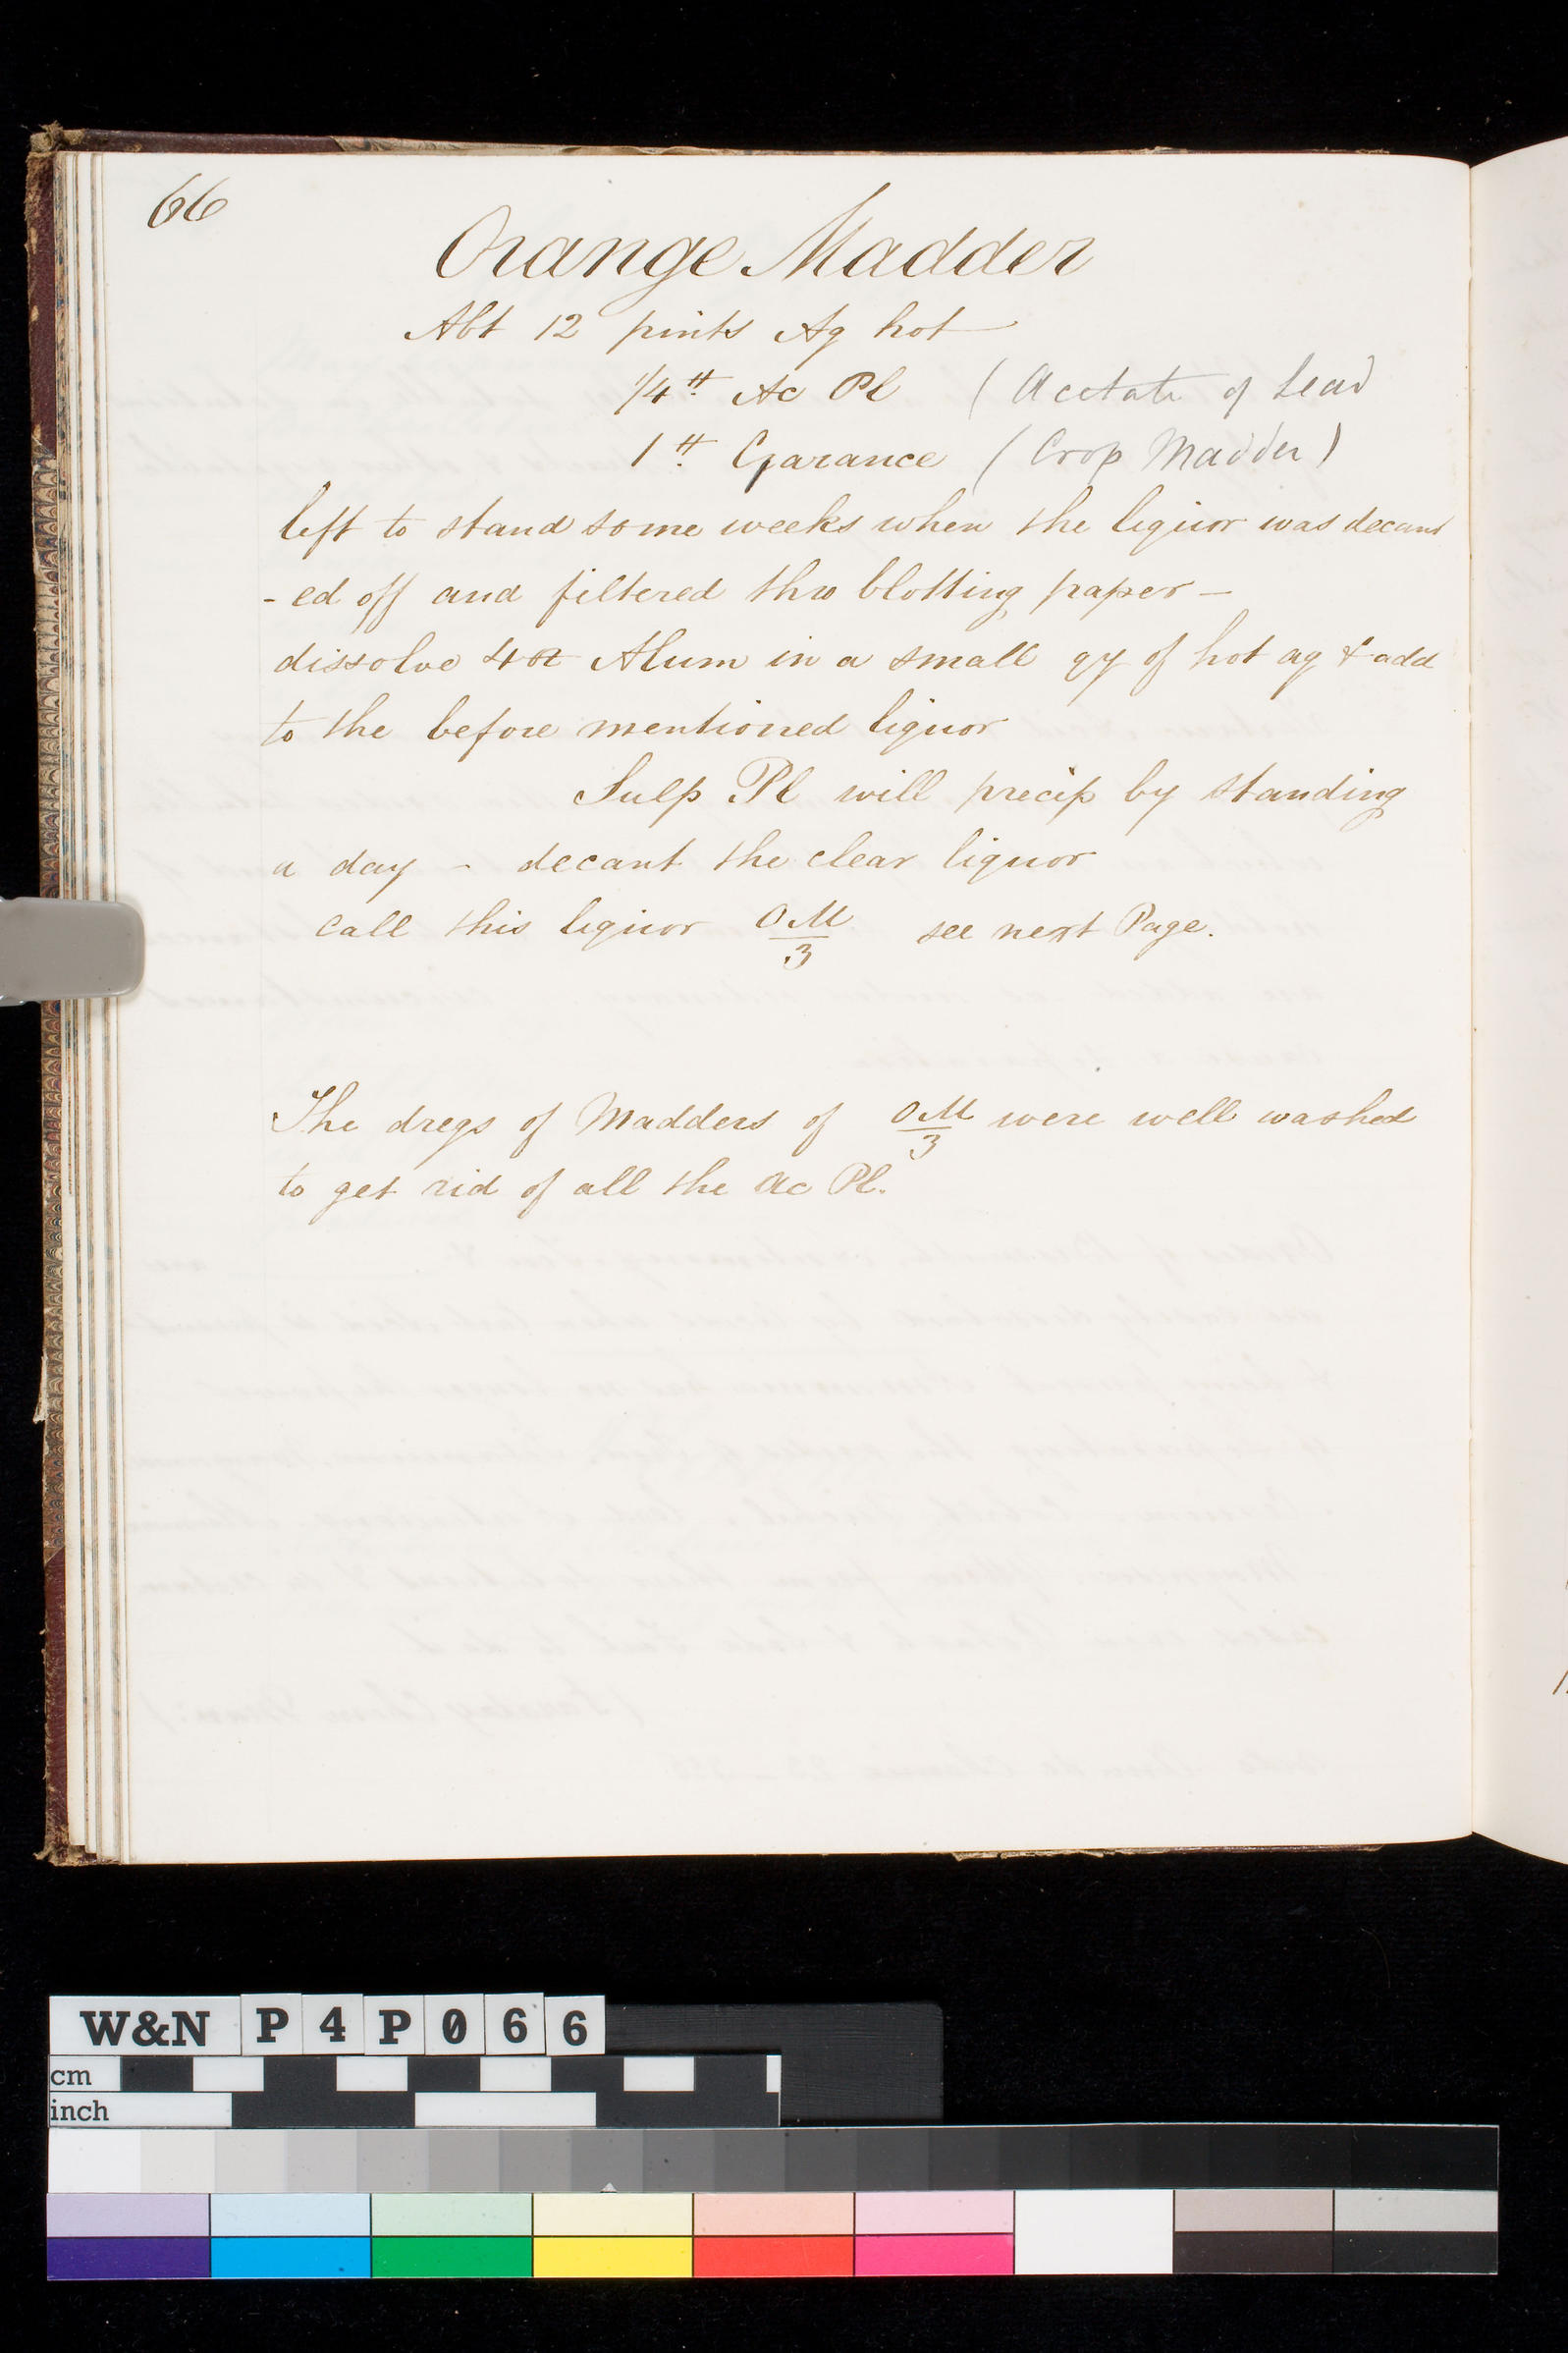 66
Orange Madder
Abt 12 pints Aq hot
1/4 ℔ Ac Pl (Acetate of Lead
1 ℔ Garance (Crop Madder)
left to stand some weeks when the liquor was decant
-ed off and filtered thro blotting paper -
dissolve 4 oz Alum in a small qy of hot aq & add
to the before mentioned liquor
Sulp Pl will precip by standing
a day - decant the clear liquor
call this liquor OM/3 see next Page.
The dregs of Madders of OM/3 were well washed
to get rid of all the Ac Pl.
W&N P4P066
cm
inch